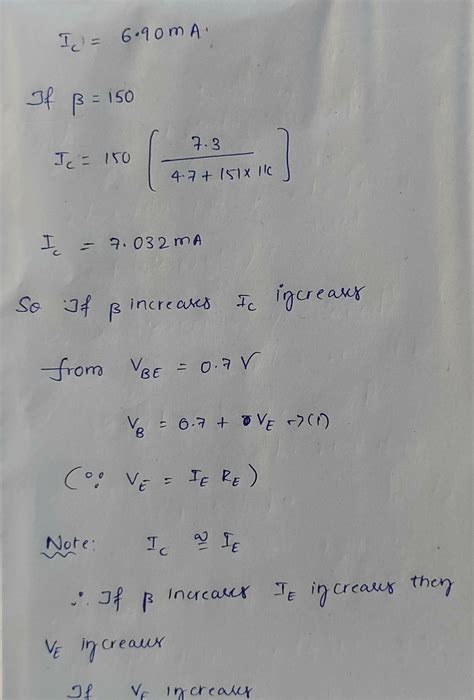 I_C = 6.90 mA.
If β = 150
I_C = 150 [ 7.3 / 4.7 + 151 x 1K ]
I_C = 7.032 mA
So If β increases I_C increases
from V_BE = 0.7 V
V_B = 0.7 + V_E → (1)
(∵ V_E = I_E R_E)
Note: I_C ≅ I_E
∴ If β increases I_E increases then
V_E increases
If V_E increases